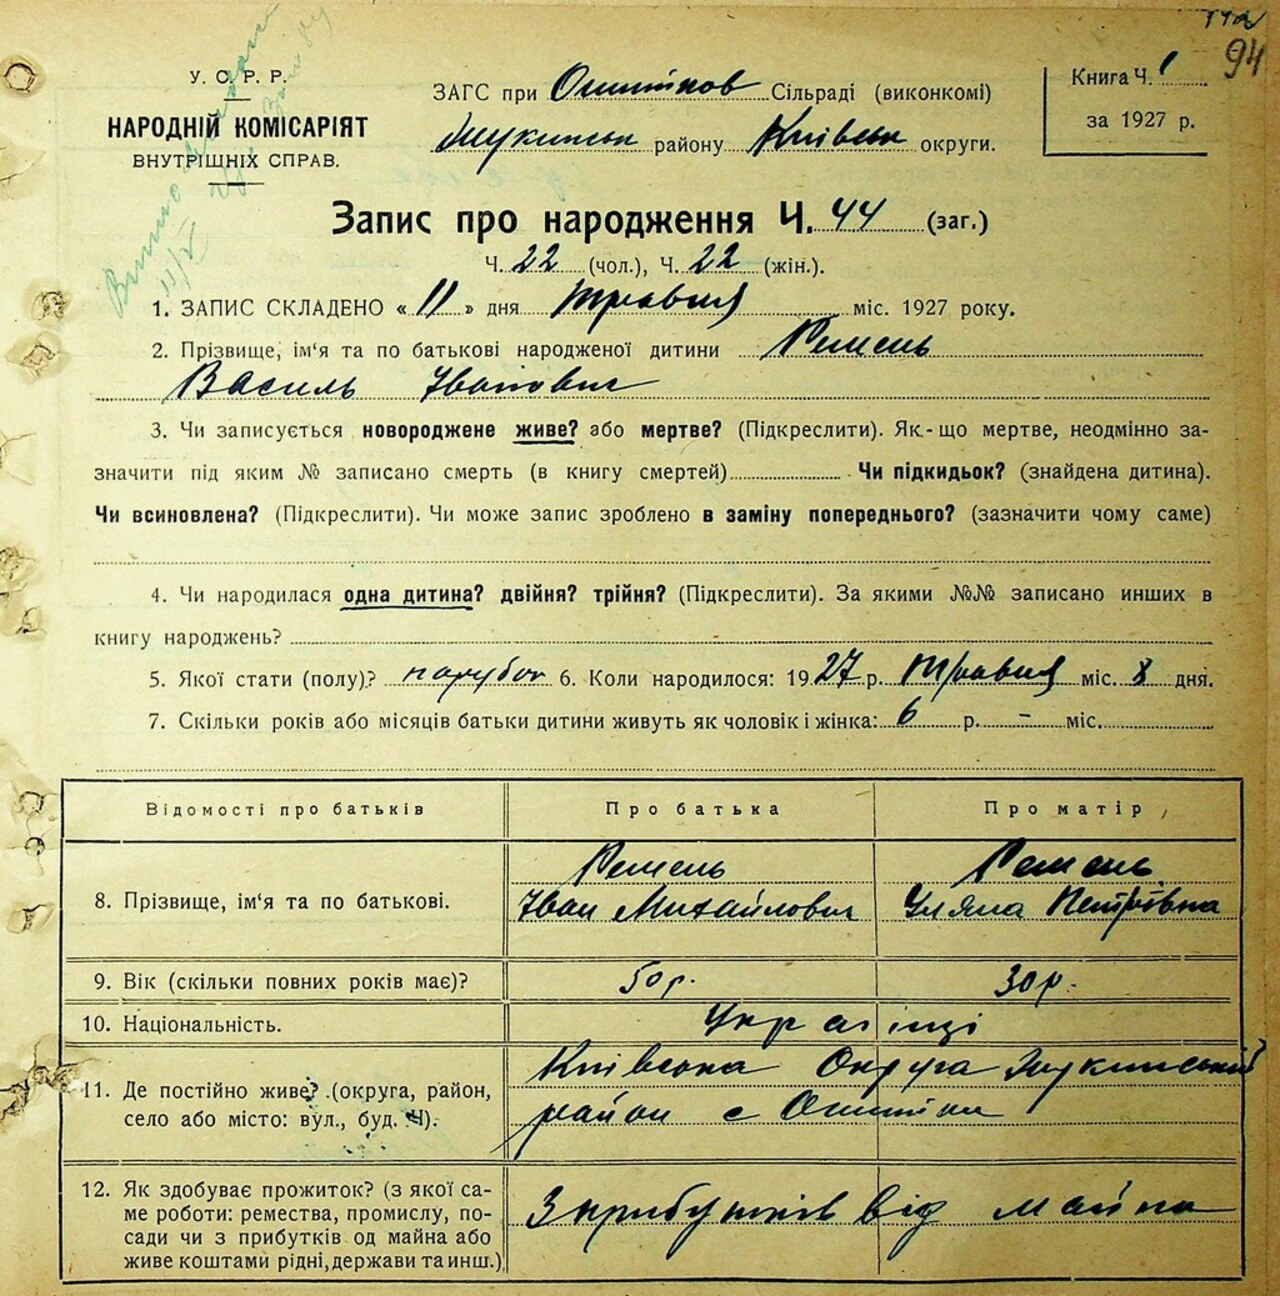 94
У. С. Р. Р.
НАРОДНІЙ КОМІСАРІЯТ
ВНУТРІШНІХ СПРАВ.
ЗАГС при Ошитков Сільраді (виконкомі)
району Київськ округи.
Книга Ч. 1
за 1927 р.
Запис про народження Ч. 44 (заг.)
Ч. 22 (чол.), Ч. 22 (жін.).
1. ЗАПИС СКЛАДЕНО « 11 » дня травня міс. 1927 року.
2. Прізвище, ім'я та по батькові народженої дитини Ремень
Василь Іванович
3. Чи записується новороджене живе? або мертве? (Підкреслити). Як-що мертве, неодмінно за-
значити під яким № записано смерть (в книгу смертей) Чи підкидьок? (знайдена дитина).
Чи всиновлена? (Підкреслити). Чи може запис зроблено в заміну попереднього? (зазначити чому саме)
4. Чи народилася одна дитина? двійня? трійня? (Підкреслити). За якими №№ записано инших в
книгу народжень?
5. Якої стати (полу)? парубок 6. Коли народилося: 1927 р. Травня міс. 8 дня.
7. Скільки років або місяців батьки дитини живуть як чоловік і жінка: 6 р. - міс.
Відомості про батьків Про батька Про матір
Ремень Ремень
8. Прізвище, ім'я та по батькові. Іван Михайлович Уляна Петрівна
9. Вік (скільки повних років має)? 50 р. 30 р.
10. Національність. Українці
Київська Округа
11. Де постійно живе? (округа, район, район с Ошитки
село або місто: вул., буд. Ч).
12. Як здобуває прожиток? (з якої са-
ме роботи: ремества, промислу, по- З прибутків від майна
сади чи з прибутків од майна або
живе коштами рідні, держави та инш.)